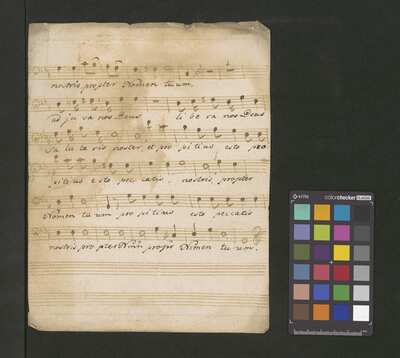 nostris propter Nomen tuum.
ad ju va nos Deus li be ra nos Deus
Sa lu ta ris noster, et pro pi tius esto pro
pitius esto pec catis, nostris, propter
Nomen tu um pro pi tius esto peccatis
nostris pro pter propter Nomen tu um.
x-rite colorchecker CLASSIC